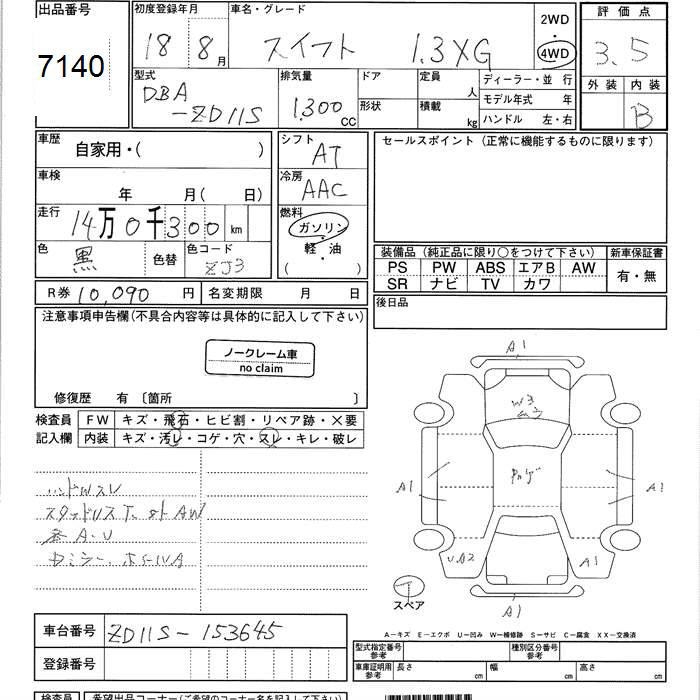 出品番号
7140
初度登録年月
18 8月
車名・グレード
スイフト 1.3XG
2WD
・
4WD
評価点
3.5
外装 内装
B
型式
DBA
-ZD11S
排気量
1.300 cc
ドア
形状
定員 人
積載 kg
ディーラー・並 行
モデル年式 年
ハンドル 左・右
車歴
自家用・( )
シフト
AT
車検
年 月( 日)
冷房
AAC
走行
14万0千300 km
燃料
ガソリン
・
軽・油
( )
色
黒
色替
色コード
ZJ3
R券 10,090 円
名変期限 月 日
セールスポイント(正常に機能するものに限ります)
装備品(純正品に限り○をつけて下さい)
新車保証書
PS PW ABS エアB AW
SR ナビ TV カワ
有・無
後日品
注意事項申告欄(不具合内容等は具体的に記入して下さい)
ノークレーム車
no claim
修復歴 有 〔箇所 〕
検査員
記入欄
FW キズ・飛石・ヒビ割・リペア跡・×要
内装 キズ・汚レ・コゲ・穴・スレ・キレ・破レ
ハンドルスレ
A1
W3
A1
A1
U.A2
A1
A1
スペア
A-キズ E-エクボ U-凹み W-補修跡 S-サビ C-腐食 XX-交換済
車台番号 ZD11S-153645
登録番号
型式指定番号
参考
種別区分番号
参考
車庫証明用
参考
長さ cm
幅 cm
高さ cm
検査員
希望出品コーナー(ご希望のコーナー名を記入下さい)